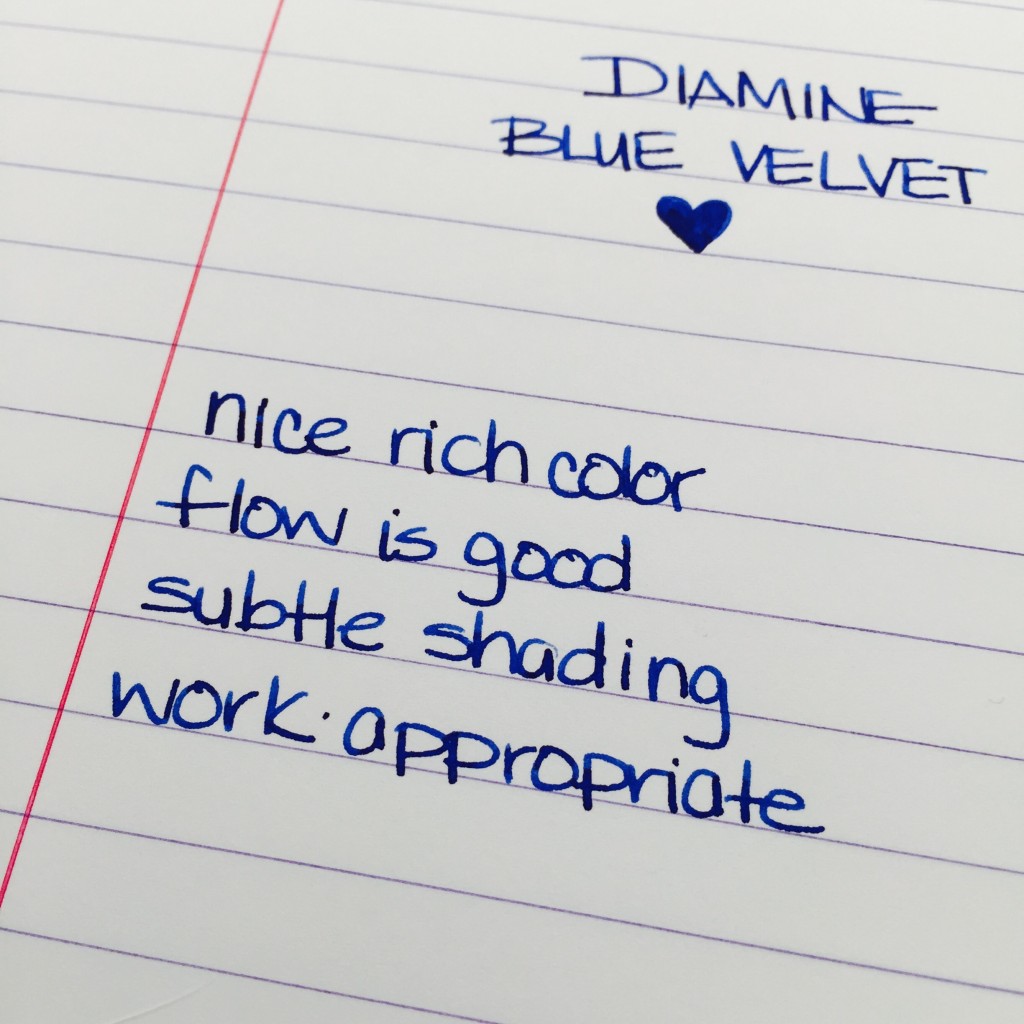 DIAMINE
BLUE VELVET
nice rich color
flow is good
subtle shading
work appropriate